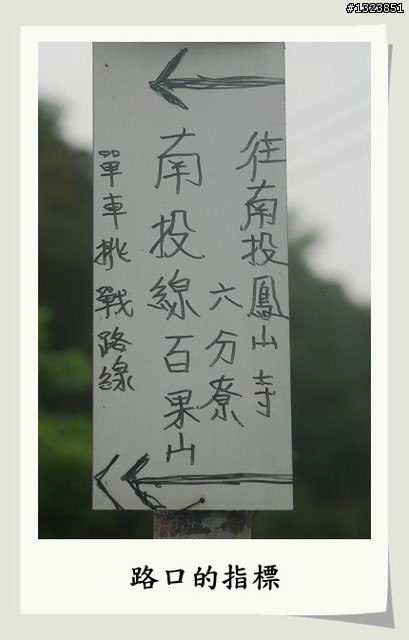 #1323851
往南投鳳山寺
六分寮
南投線百果山
單車挑戰路線
路口的指標